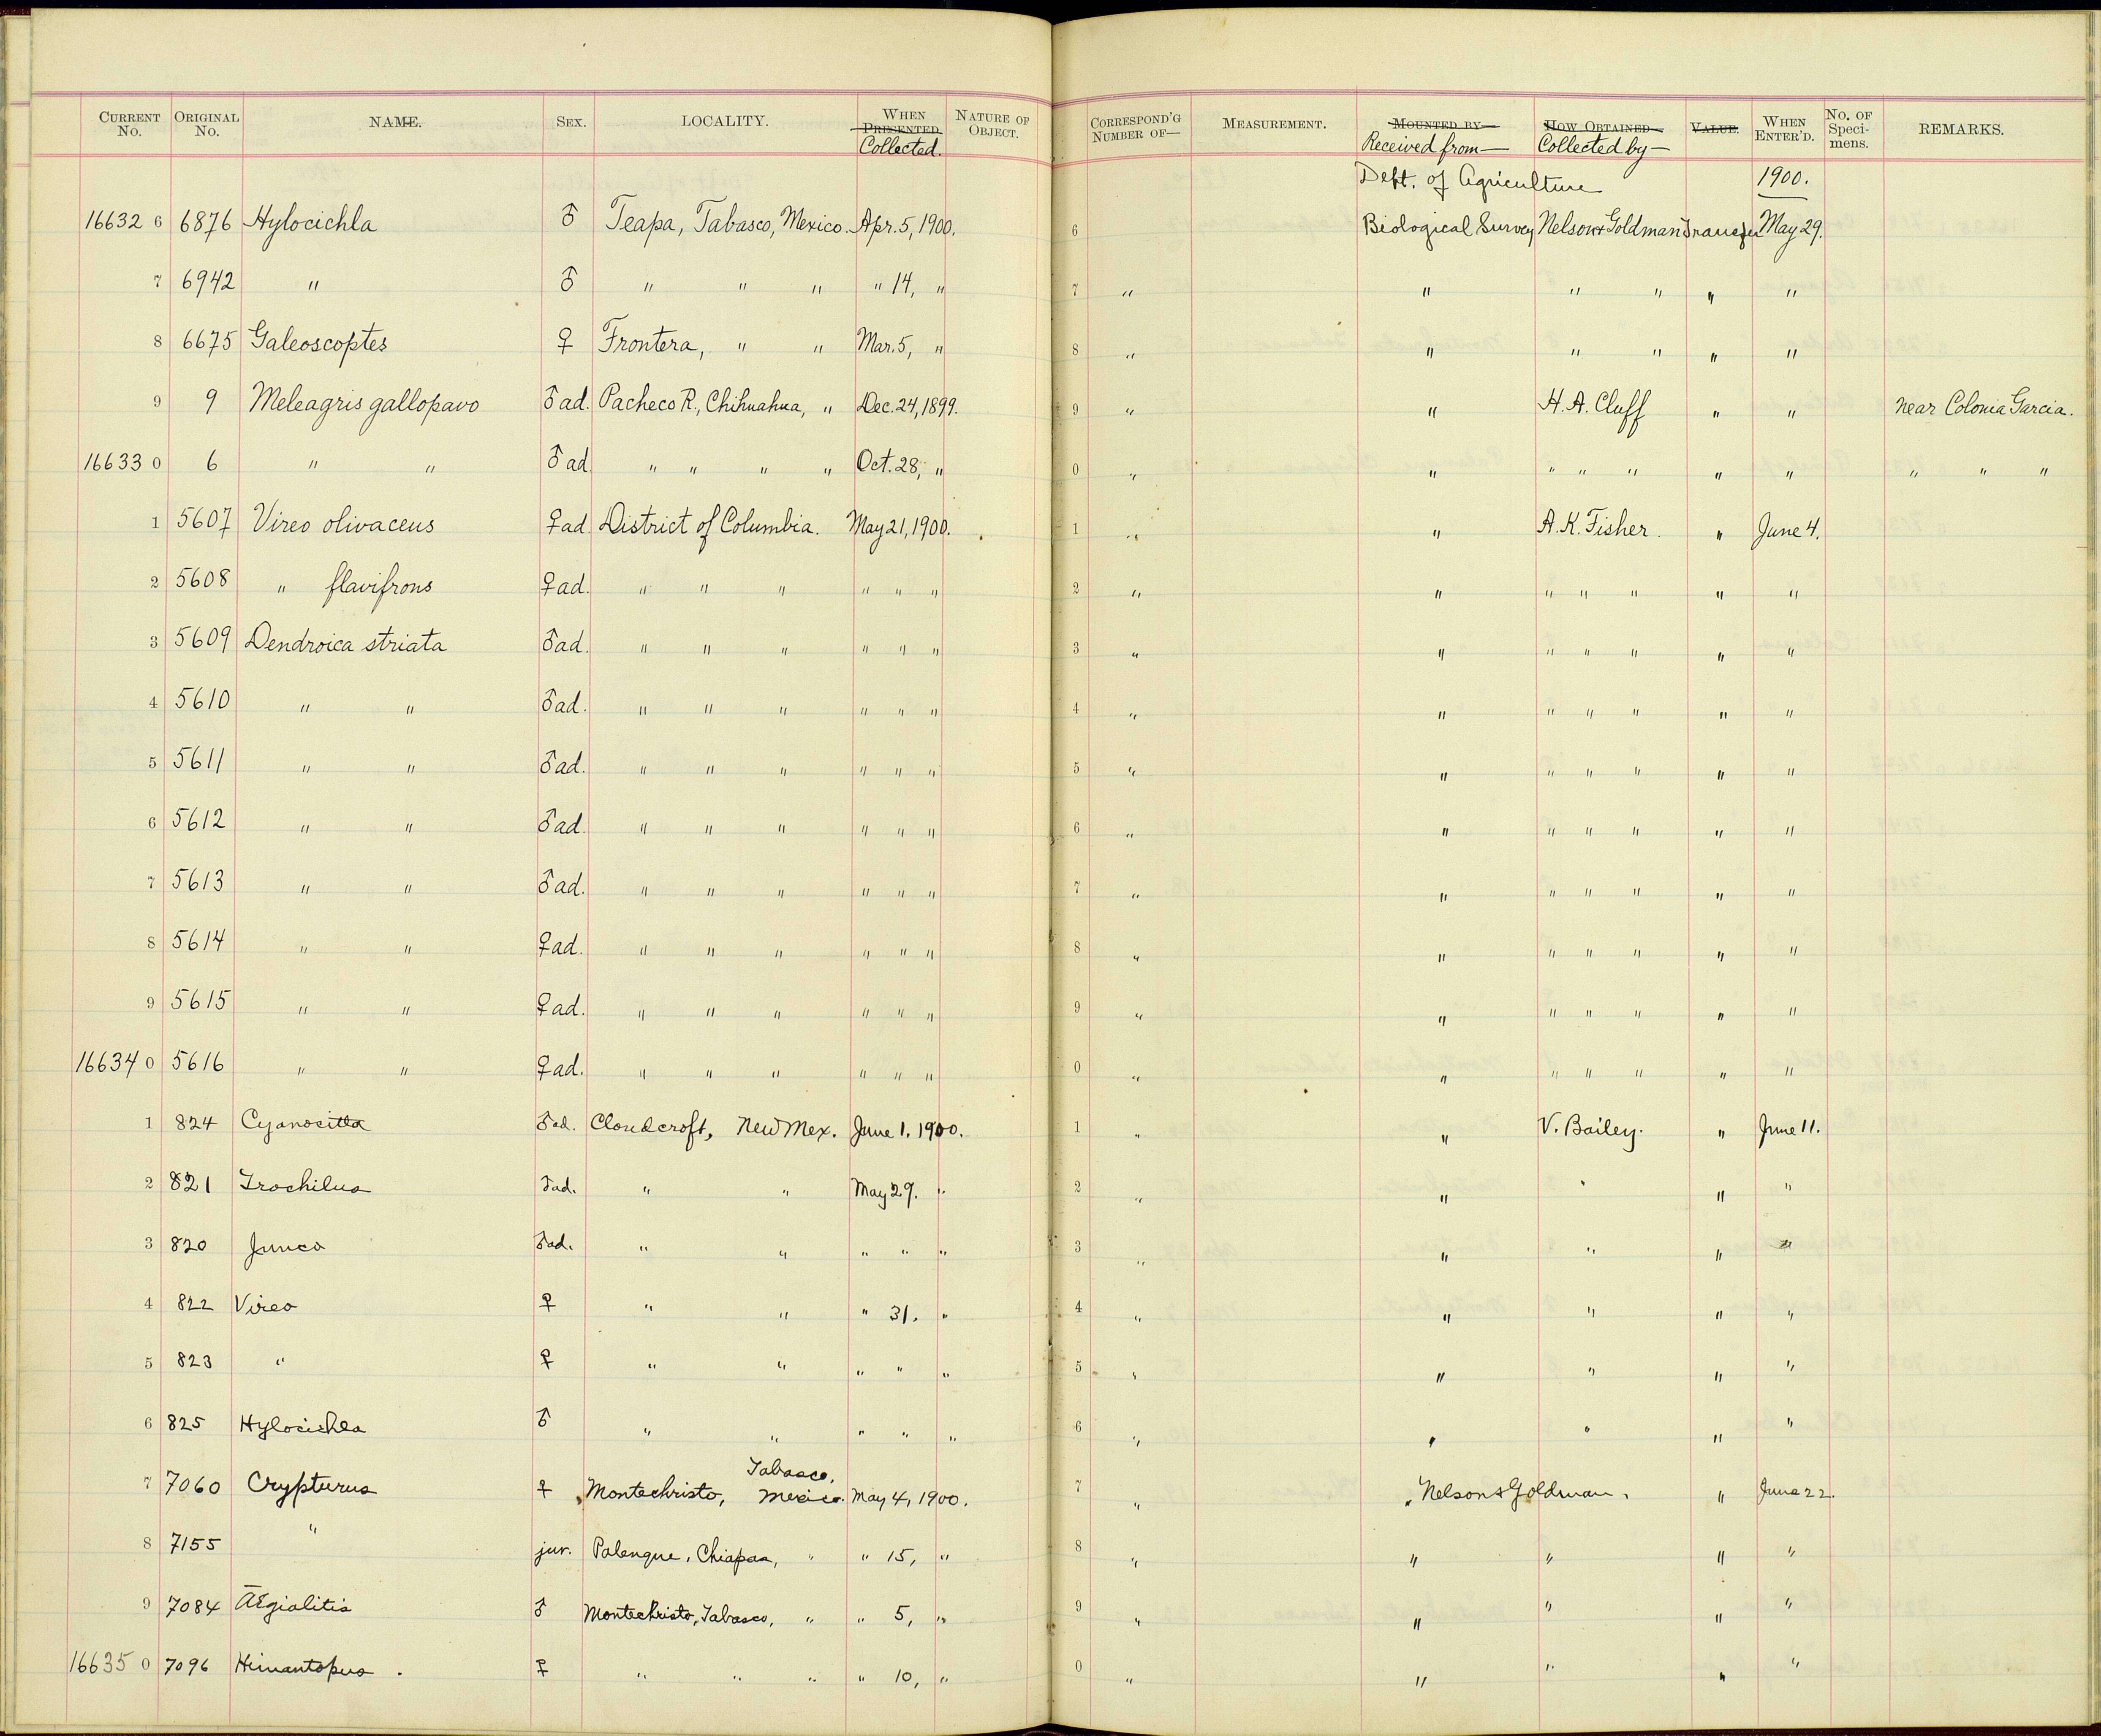 CURRENT No. ORIGINAL No. NAME. SEX. LOCALITY. WHEN PRESENTED Collected. NATURE OF OBJECT. CORRESPOND'G NUMBER OF— MEASUREMENT. MOUNTED BY— Received from— HOW OBTAINED— Collected by— VALUE. WHEN ENTER'D. No. OF Speci- mens. REMARKS.
Dept. of Agriculture 1900.
16632 6 6876 Hylocichla ♂ Teapa, Tabasco, Mexico. Apr. 5, 1900. 6 Biological Survey Nelson & Goldman Transfer May 29.
7 6942 " ♂ " " " " 14, " 7 " " " " " "
8 6675 Galeoscoptes ♀ Frontera, " " Mar. 5, " 8 " " " " " "
9 9 Meleagris gallopavo ♂ ad. Pacheco R., Chihuahua, " Dec. 24, 1899. 9 " " H. A. Cluff " " near Colonia Garcia.
16633 0 6 " " ♂ ad " " " " Oct. 28, " 0 " " " " " " " " " "
1 5607 Vireo olivaceus ♀ ad. District of Columbia. May 21, 1900. 1 " " A. K. Fisher. " June 4.
2 5608 " flavifrons ♀ ad. " " " " " " 2 " " " " " " "
3 5609 Dendroica striata ♂ ad. " " " " " " 3 " " " " " " "
4 5610 " " ♂ ad. " " " " " " 4 " " " " " " "
5 5611 " " ♂ ad. " " " " " " 5 " " " " " " "
6 5612 " " ♂ ad. " " " " " " 6 " " " " " " "
7 5613 " " ♂ ad. " " " " " " 7 " " " " " " "
8 5614 " " ♀ ad. " " " " " " 8 " " " " " " "
9 5615 " " ♀ ad. " " " " " " 9 " " " " " " "
16634 0 5616 " " ♀ ad. " " " " " " 0 " " " " " " "
1 824 Cyanocitta ♂ ad. Cloudcroft, New Mex. June 1. 1900. 1 " " V. Bailey. " June 11.
2 821 Trochilus ♂ ad. " " May 29. " 2 " " " " "
3 820 Junco ♂ ad. " " " " " 3 " " " " "
4 822 Vireo ♀ " " " 31. " 4 " " " " "
5 823 " ♀ " " " " " 5 " " " " "
6 825 Hylocichla ♂ " " " " " 6 " " " " "
7 7060 Crypturus ♀ Montechristo, Tabasco, Mexico. May 4, 1900. 7 " " Nelson & Goldman. " June 22.
8 7155 " juv. Palenque, Chiapas, " " 15, " 8 " " " " "
9 7084 Ægialitis ♂ Montechristo, Tabasco, " " 5, " 9 " " " " "
16635 0 7096 Himantopus. ♀ " " " " 10, " 0 " " " " "